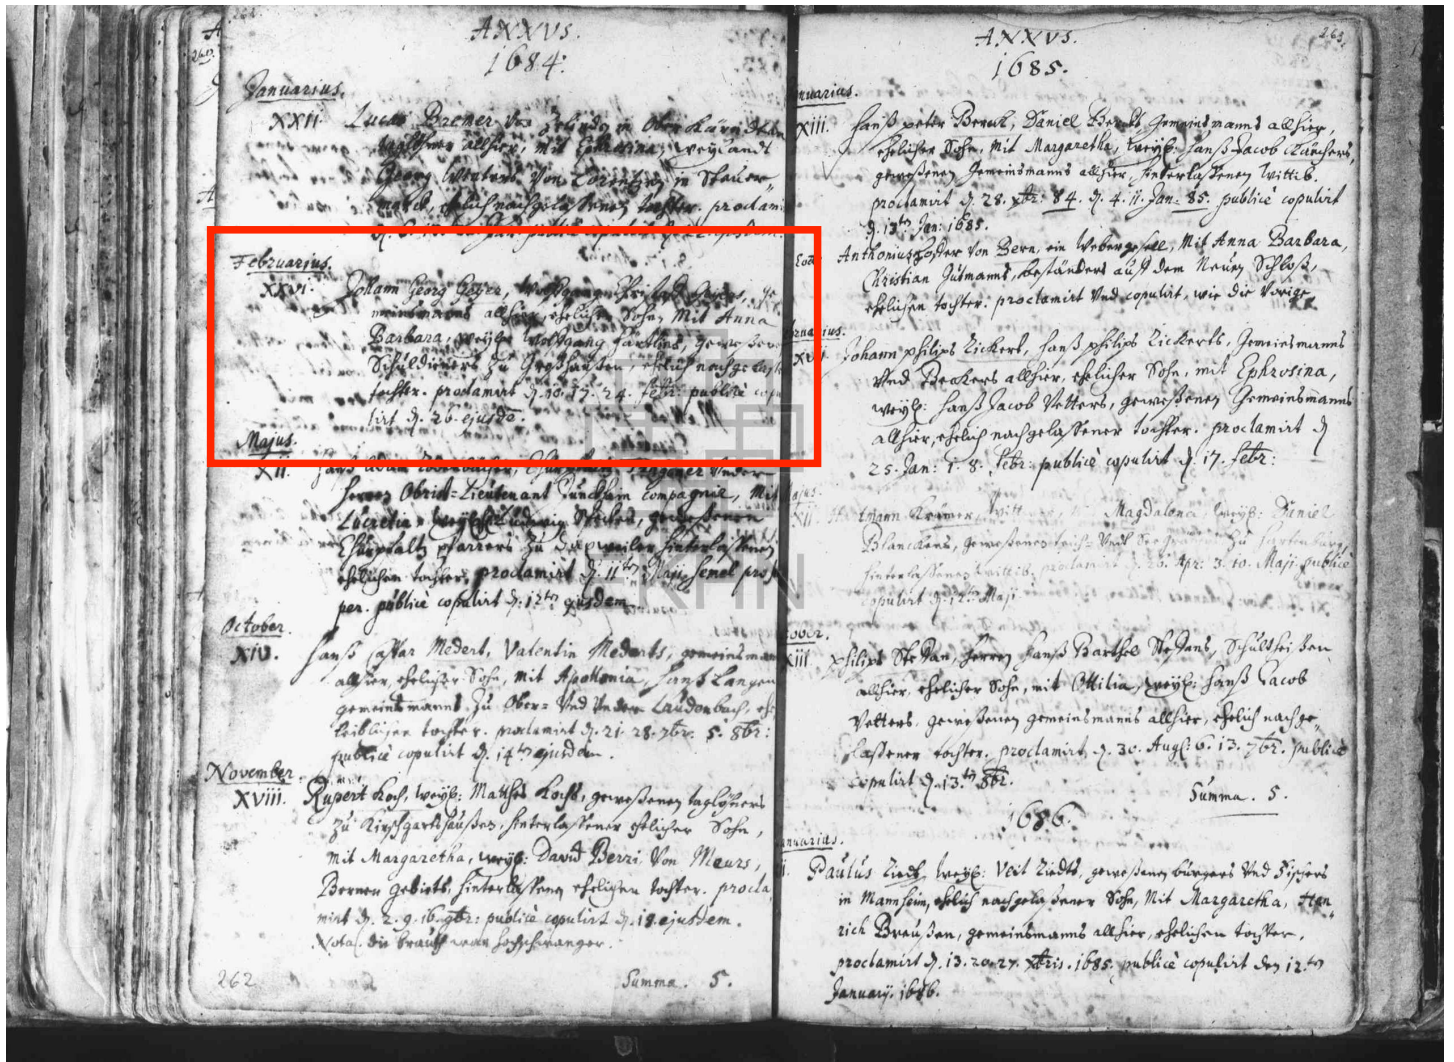 262
ANNVS.
1684.
Januarius.
XXII. Lucas Bremer von in Ober
taglöhner allhier, mit Euphrosina, weylandt
Georg von in Steuer"
marck, ehelich nachgelaßenen tochter. proclami
publicè copulirt
Februarius.
XXVI. Johann Georg Geyer, Geyers, ge
meinsmanns allhier, ehelicher Sohn, Mit Anna
Barbara, weyl: Wolfgang geweßenen
Schuldieners zu Großhaußen, ehelich nachgelaßene
tochter. proclamirt d. 10. 17. 24. febr: publicè copu
lirt d. 26. ejusdem.
Majus.
XII. Hanß Adam Under
Herren Obrist-Lieutenant compagnie, Mit
Lucretia, weyl: Ludwig geweßenen
Churpfaltz pfarrers zu hinterlaßenen
ehelichen tochter, proclamirt d. 11ten Maji, semel pro
per. publicè copulirt d. 12ten ejusdem
October.
XIV. Hanß Caspar Medert, Valentin Mederts, gemeinsman
allhier, ehelicher Sohn, mit Apollonia, Hanß Langen
gemeinsmanns zu Ober- Und Under Laudenbach, ehe
leiblichen tochter. proclamirt d. 21. 28. 7br. 5. 8br:
publicè copulirt d. 14ten ejusdem.
November.
XVIII. Rupert Koch, weyl: Matthes Kochs, geweßenen taglöhners
zu Kirschgartshaußen, hinterlaßener ehelicher Sohn,
mit Margaretha, weyl: David Berri von Meurs,
Berner gebiets, hinterlaßenen ehelichen tochter. procla
mirt d. 2. 9. 16. 9br: publicè copulirt d. 18. ejusdem.
Nota. die brauth war hochschwanger.
262 Summa. 5.
263
ANNVS.
1685.
anuarius.
XIII. Hanß peter Berck, Daniel gemeinsmanns allhier,
ehelicher Sohn, mit Margaretha, weyl: Hanß Jacob
geweßenen Gemeinsmanns allhier, hinterlaßenen Wittib.
proclamirt d. 28. xbr: 84. d. 4. 11. Jan: 85. publicè copulirt
d. 13ten Jan: 1685.
Eod. Anthonius von Bern, ein Webergesell, Mit Anna Barbara,
Christian Gutmanns, beständers auff dem Neuen Schloß,
ehelichen tochter. proclamirt Und copulirt, wie die Vorige
bruarius.
XVII. Johann philips Zickert, Hanß philips Zickerts, Gemeinsmanns
Und Beckers allhier, ehelicher Sohn, mit Ephrosina,
weyl: Hanß Jacob Vetters, geweßenen Gemeinsmanns
allhier, ehelich nachgelaßener tochter. proclamirt d
25. Jan: 1. 8. febr: publicè copulirt d. 17. febr:
ajus.
XII. Krämer, Witt Magdalena, weyl: Daniel
Blanckens, geweßenen
hinterlaßenen Wittib. proclamirt d. 26. Apr: 3. 10. Maji publicè
copulirt d. 12ten Maji
tober.
XIII. philips Stephan, Herren Hanß Barthel Stephans, Schultheißen
allhier, ehelicher Sohn, mit Ottilia, weyl: Hanß Jacob
Vetters, geweßenen gemeinsmanns allhier, ehelich nachge"
laßener tochter. proclamirt d. 30. Aug: 6. 13. 7br. publicè
copulirt d. 13ten 8br.
Summa. 5.
1686.
anuarius.
Paulus Liedt, weyl: Veit Liedts, geweßenen bürgers Und Fischers
in Mannheim, ehelich nachgelaßener Sohn, Mit Margaretha, Hen"
rich Breußen, gemeinsmanns allhier, ehelichen tochter,
proclamirt d. 13. 20. 27. xbris. 1685. publicè copulirt den 12ten
January. 1686.
EKHN